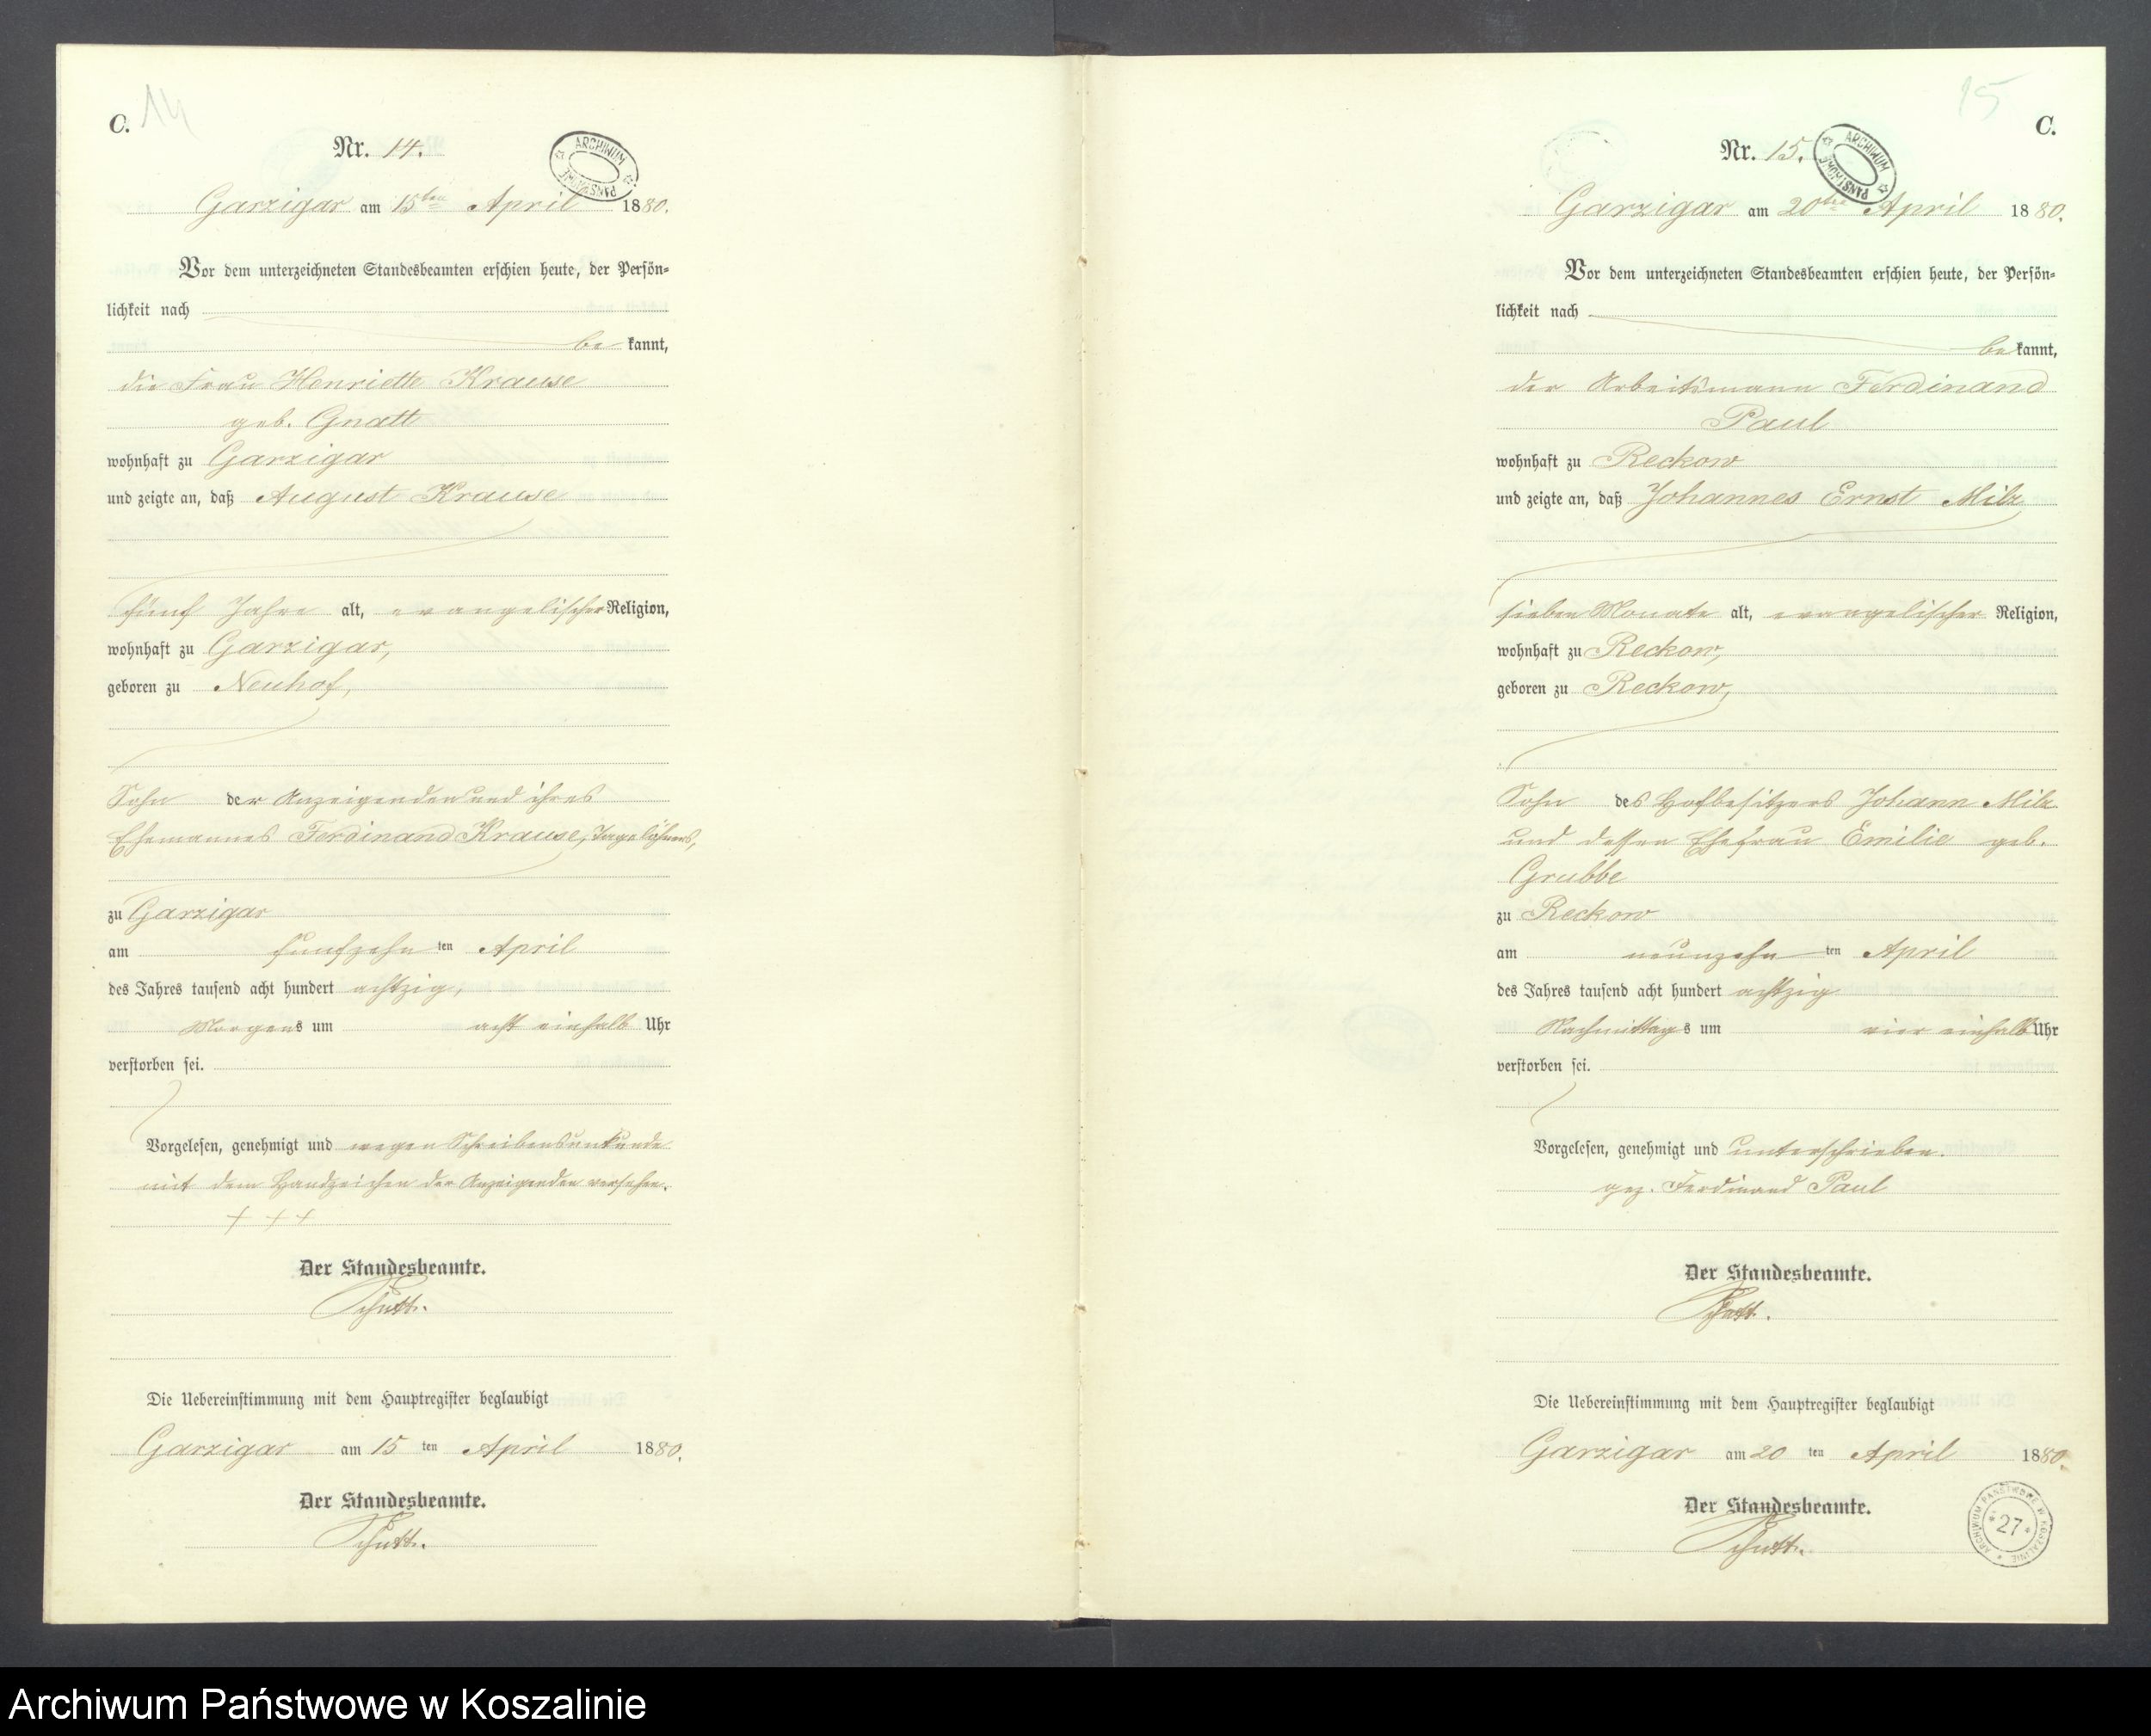 C. 14
Nr. 14.
ARCHIWUM PAŃSTWOWE
Garzigar am 15ten April 1880.
Vor dem unterzeichneten Standesbeamten erschien heute, der Persön=
lichkeit nach
be kannt,
die Frau Henriette Krause
geb. Gnatt
wohnhaft zu Garzigar
und zeigte an, daß August Krause
fünf Jahre alt, evangelischer Religion,
wohnhaft zu Garzigar,
geboren zu Neuhof,
Sohn der Anzeigenden und ihres
Ehemannes Ferdinand Krause, Tagelöhners,
zu Garzigar
am fünfzehn ten April
des Jahres tausend acht hundert achtzig,
Morgens um acht einhalb Uhr
verstorben sei.
Vorgelesen, genehmigt und wegen Schreibensunkunde
mit dem Handzeichen der Anzeigenden versehen.
+ + +
Der Standesbeamte.
Die Uebereinstimmung mit dem Hauptregister beglaubigt
Garzigar am 15 ten April 1880.
Der Standesbeamte.
15 C.
Nr. 15.
ARCHIWUM PAŃSTWOWE
Garzigar am 20ten April 1880.
Vor dem unterzeichneten Standesbeamten erschien heute, der Persön=
lichkeit nach
be kannt,
der Arbeitsmann Ferdinand
Paul
wohnhaft zu Reckow
und zeigte an, daß Johannes Ernst Milz
sieben Monate alt, evangelischer Religion,
wohnhaft zu Reckow,
geboren zu Reckow,
Sohn des Hofbesitzers Johann Milz
und dessen Ehefrau Emilie geb.
Grubbe
zu Reckow
am neunzehn ten April
des Jahres tausend acht hundert achtzig
Nachmittags um vier einhalb Uhr
verstorben sei.
Vorgelesen, genehmigt und unterschrieben.
gez. Ferdinand Paul
Der Standesbeamte.
Die Uebereinstimmung mit dem Hauptregister beglaubigt
Garzigar am 20 ten April 1880.
Der Standesbeamte.
ARCHIWUM PAŃSTWOWE W KOSZALINIE
27
Archiwum Państwowe w Koszalinie